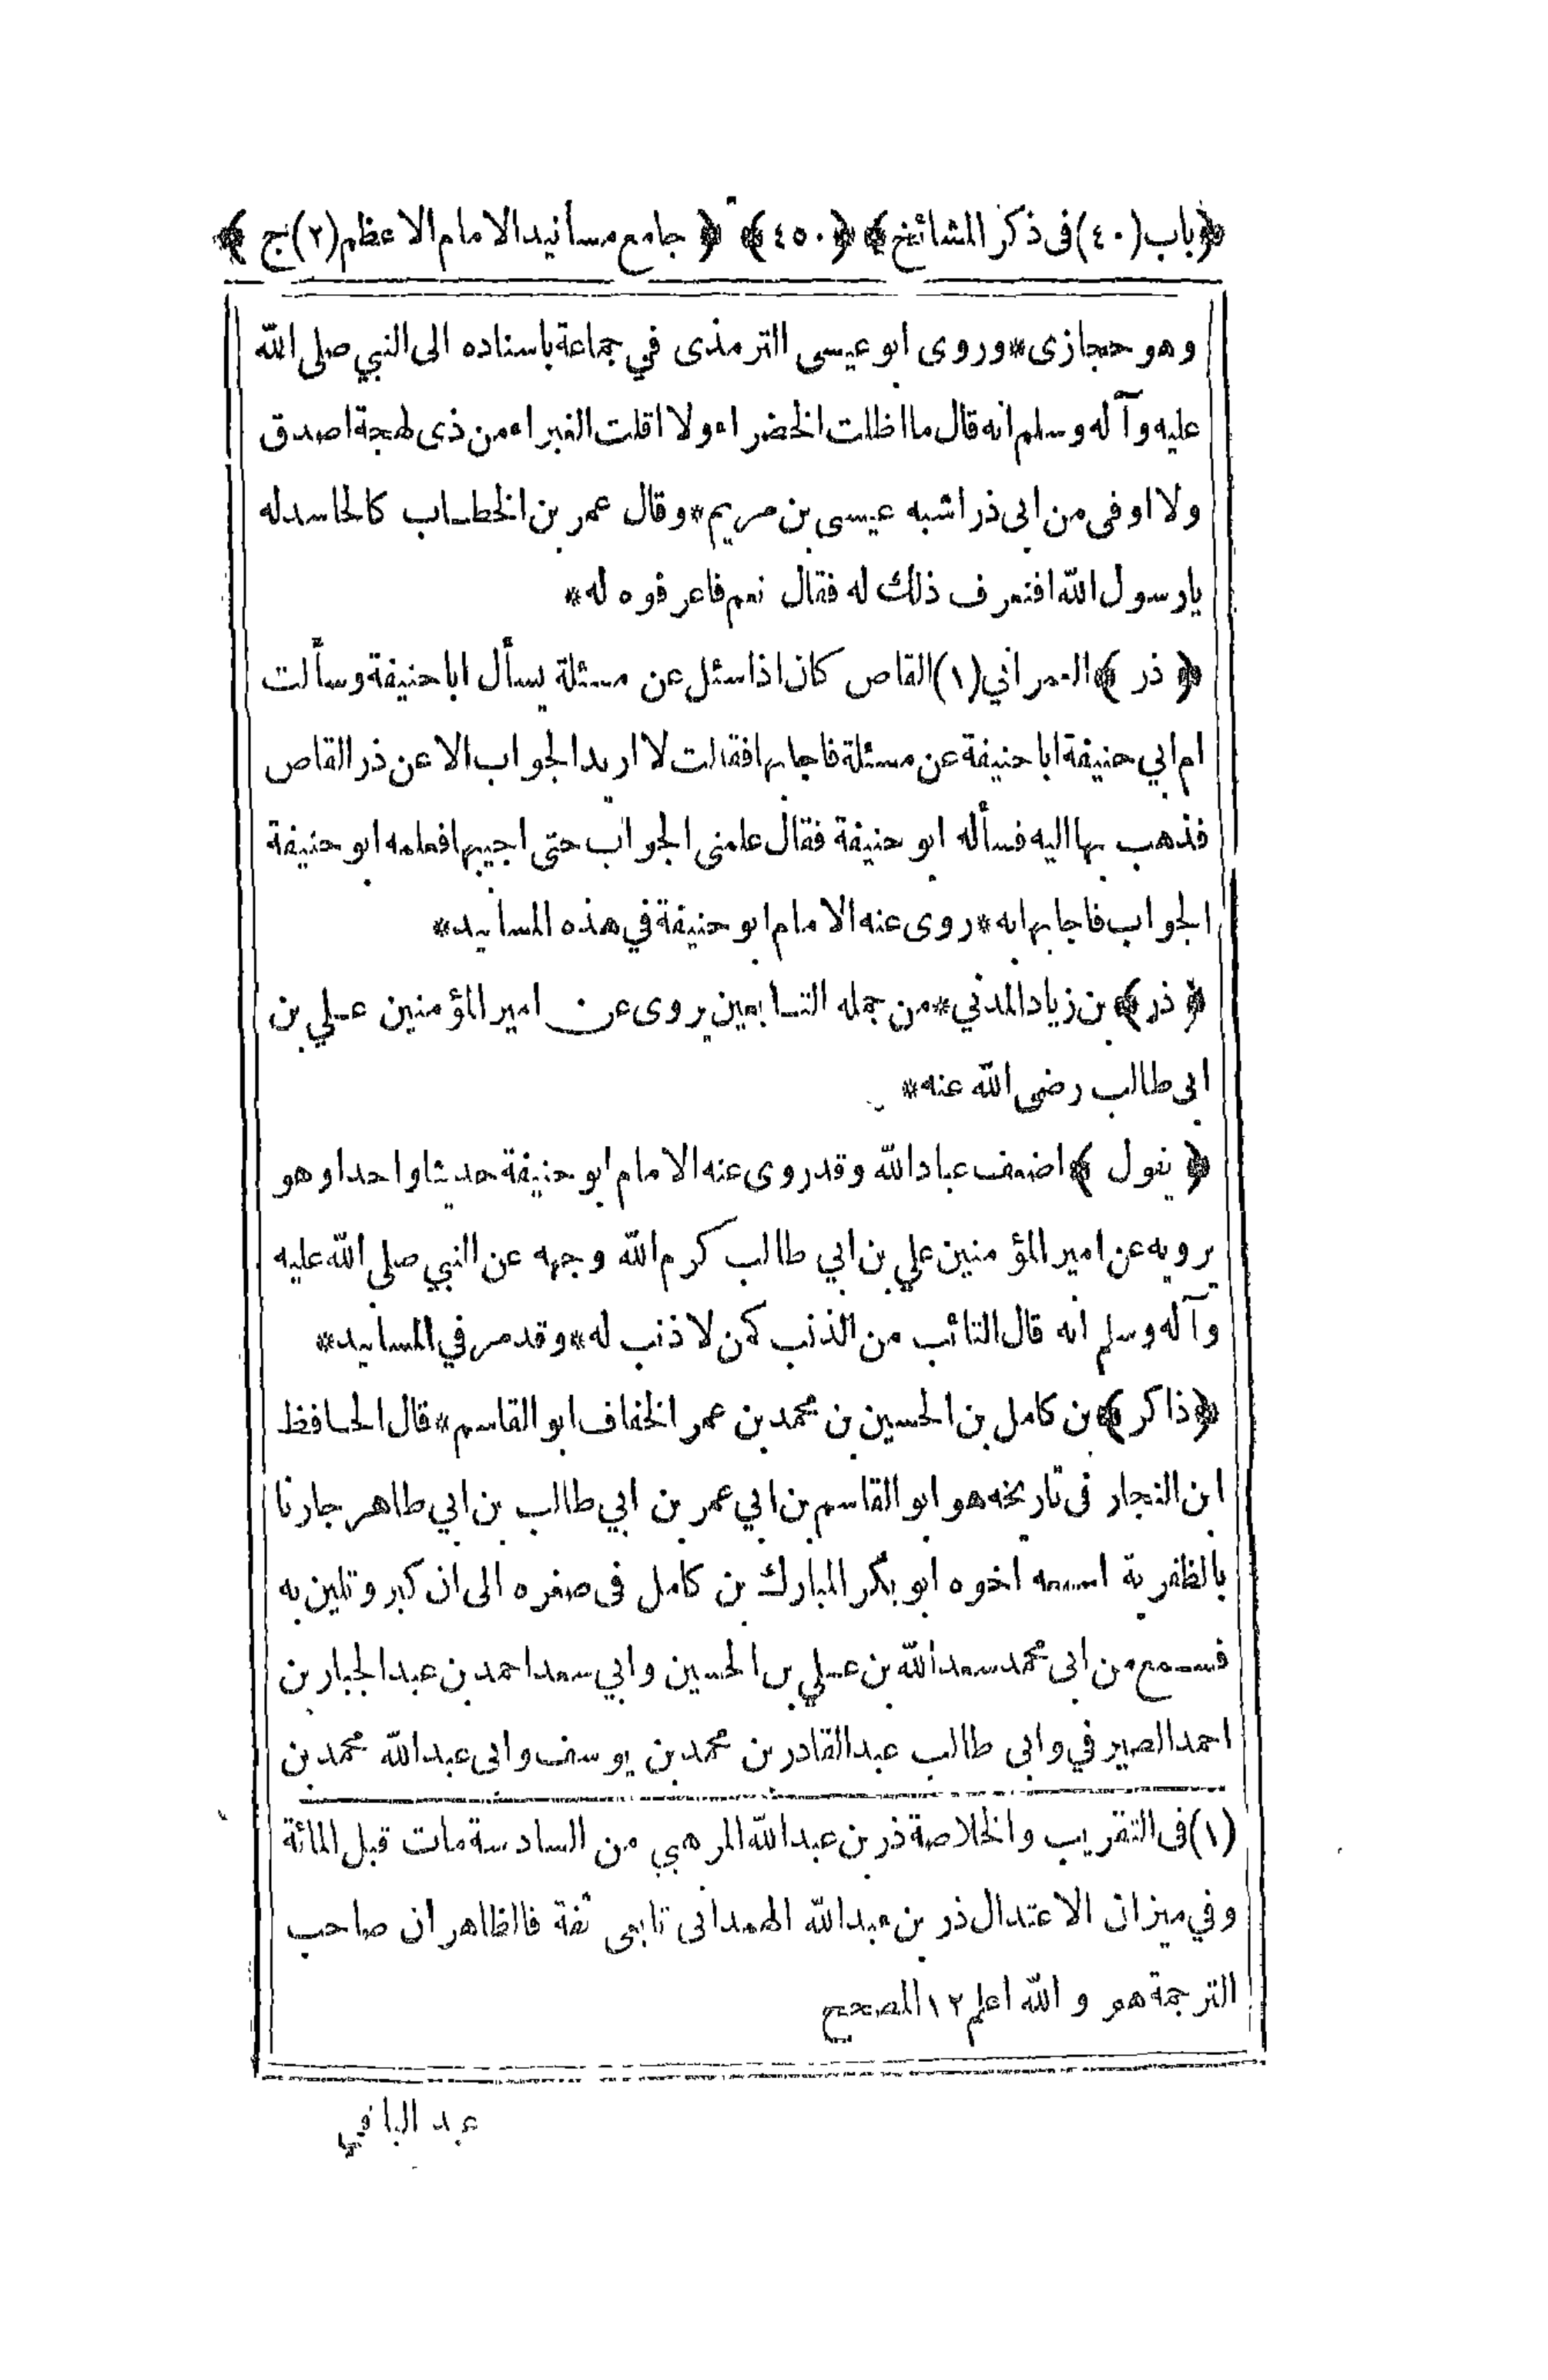 ﴿باب (٤٠) فى ذكر المشائخ﴾ ﴿٤٥٠﴾ ﴿جامع مسانيد الامام الاعظم (٢) ج﴾
وهو حجازى * وروى ابو عيسى الترمذى في جماعة باسناده الى النبي صلى الله
عليه وآله وسلم انه قال ما اظلت الخضراء ولا اقلت الغبراء من ذى لهجة اصدق
ولا اوفى من ابى ذر اشبه عيسى بن مريم * وقال عمر بن الخطاب كالحاسد له
يا رسول الله افنعرف ذلك له فقال نعم فاعرفوه له *
﴿ذر﴾ العمراني (١) القاص كان اذا سئل عن مسئلة يسأل ابا حنيفة وسألت
ام ابي حنيفة ابا حنيفة عن مسئلة فاجابها فقالت لا اريد الجواب الا عن ذر القاص
فذهب بها اليه فسأله ابو حنيفة فقال علمنى الجواب حتى اجيبها فعلمه ابو حنيفة
الجواب فاجابها به * روى عنه الامام ابو حنيفة في هذه المسانيد *
﴿ذر﴾ بن زياد المدني * من جمله التابعين يروى عن امير المؤمنين علي بن
ابى طالب رضى الله عنه *
﴿يقول﴾ اضعف عباد الله وقد روى عنه الامام ابو حنيفة حديثا واحدا وهو
يرويه عن امير المؤمنين علي بن ابي طالب كرم الله وجهه عن النبي صلى الله عليه
وآله وسلم انه قال التائب من الذنب كمن لا ذنب له * وقد مر في المسانيد *
﴿ذاكر﴾ بن كامل بن الحسين بن محمد بن عمر الخفاف ابو القاسم * قال الحافظ
ابن النجار فى تاريخه هو ابو القاسم بن ابي عمر بن ابي طالب بن ابي طاهر جارنا
بالظفرية اسمعه اخوه ابو بكر المبارك بن كامل فى صغره الى ان كبر وتلين به
فسمع من ابى محمد سعد الله بن علي بن الحسين وابي سعد احمد بن عبد الجبار بن
احمد الصيرفي وابى طالب عبد القادر بن محمد بن يوسف وابى عبد الله محمد بن
(١) فى التقريب والخلاصة ذر بن عبد الله المرهبي من السادسة مات قبل المائة
وفي ميزان الاعتدال ذر بن عبد الله الهمدانى تابعى ثقة فالظاهر ان صاحب
الترجمة هو والله اعلم ١٢ المصحح
عبد الباقي